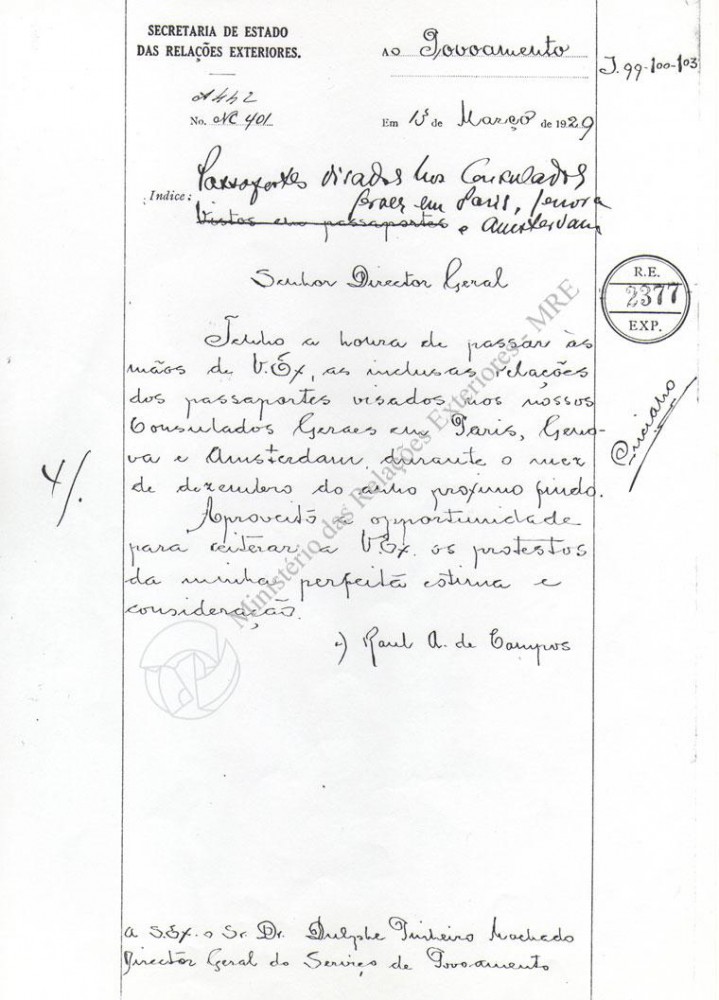 SECRETARIA DE ESTADO
DAS RELAÇÕES EXTERIORES.
AO Povoamento
J. 99-100-103
No. NC 401
Em 15 de Março de 1929
Indice: Passaportes visados nos Consulados
Geraes em Paris, Genova
Vistos em passaportes e Amsterdam
Senhor Director Geral
R.E.
2377
EXP.
Tenho a honra de passar às
mãos de V.Ex, as inclusas relações
dos passaportes visados nos nossos
Consulados Geraes em Paris, Geno-
va e Amsterdam, durante o mez
de dezembro do anno proximo findo.
4/.
Aproveito a opportunidade
para reiterar a V.Ex. os protestos
da minha perfeita estima e
consideração.
a) Raul A. de Campos
Ministério das Relações Exteriores - MRE
A S.Ex. o Sr. Dr. Dulphe Pinheiro Machado
Director Geral do Serviço de Povoamento